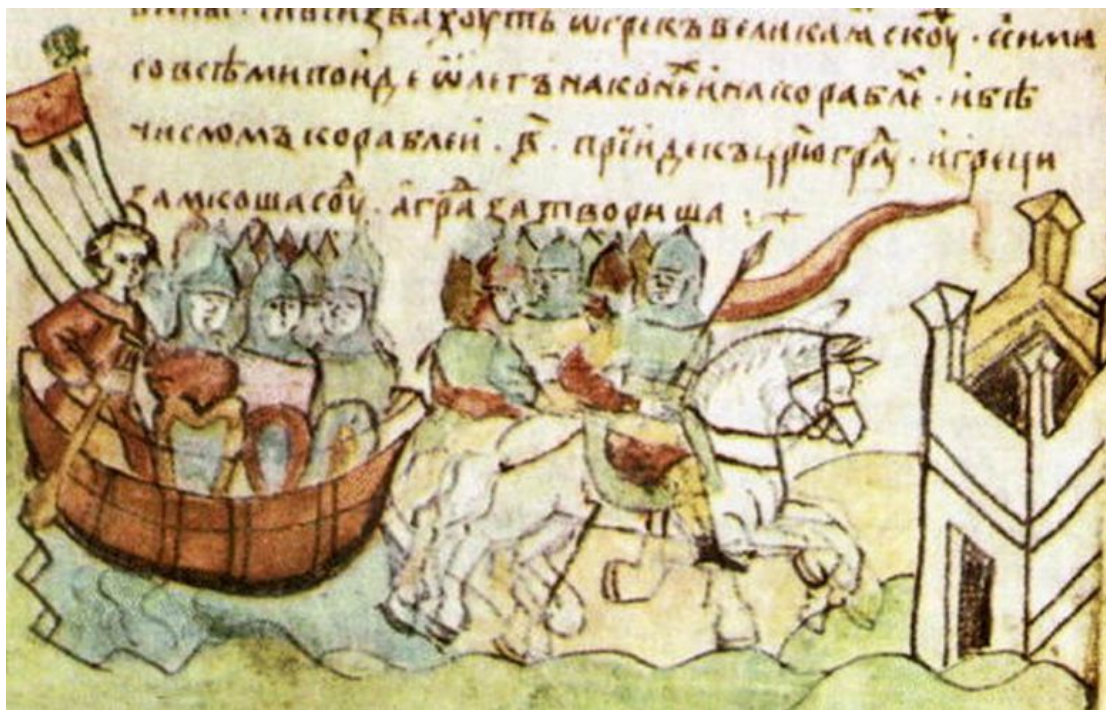 звахоуть ѿ грекъ великаа скоуⷴ · и сими
со всѣми поиде ѡлегъ на конеⷯ и на кораблеⷯ · и бѣ
числомъ кораблеи · в҃ · прїиде къ цр҃югра · и греци
замкоша соуⷣ · а граⷣ затвориша :~